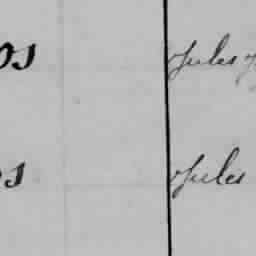 os Jules
s Jules